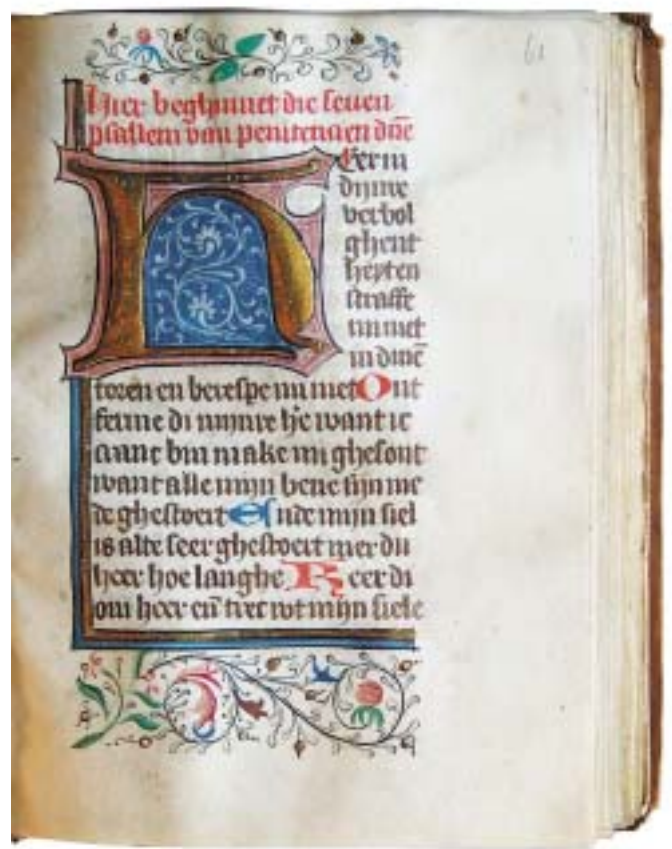 61
Hier beghinnet die seuen
psalsem van penitencien dñe
HEer in
dijnre
verbol
ghent
heyten
straffe
mi niet
in dinē
toren en berespe mi niet Ont
ferme di mijnre hē want ic
cranc bin make mi ghesont
want alle mijn bene sijn me
de ghestoert Ende mijn siel
is alte seer ghestoert mer du
heer hoe langhe Keer di
om heer eñ tret wt mijn siele